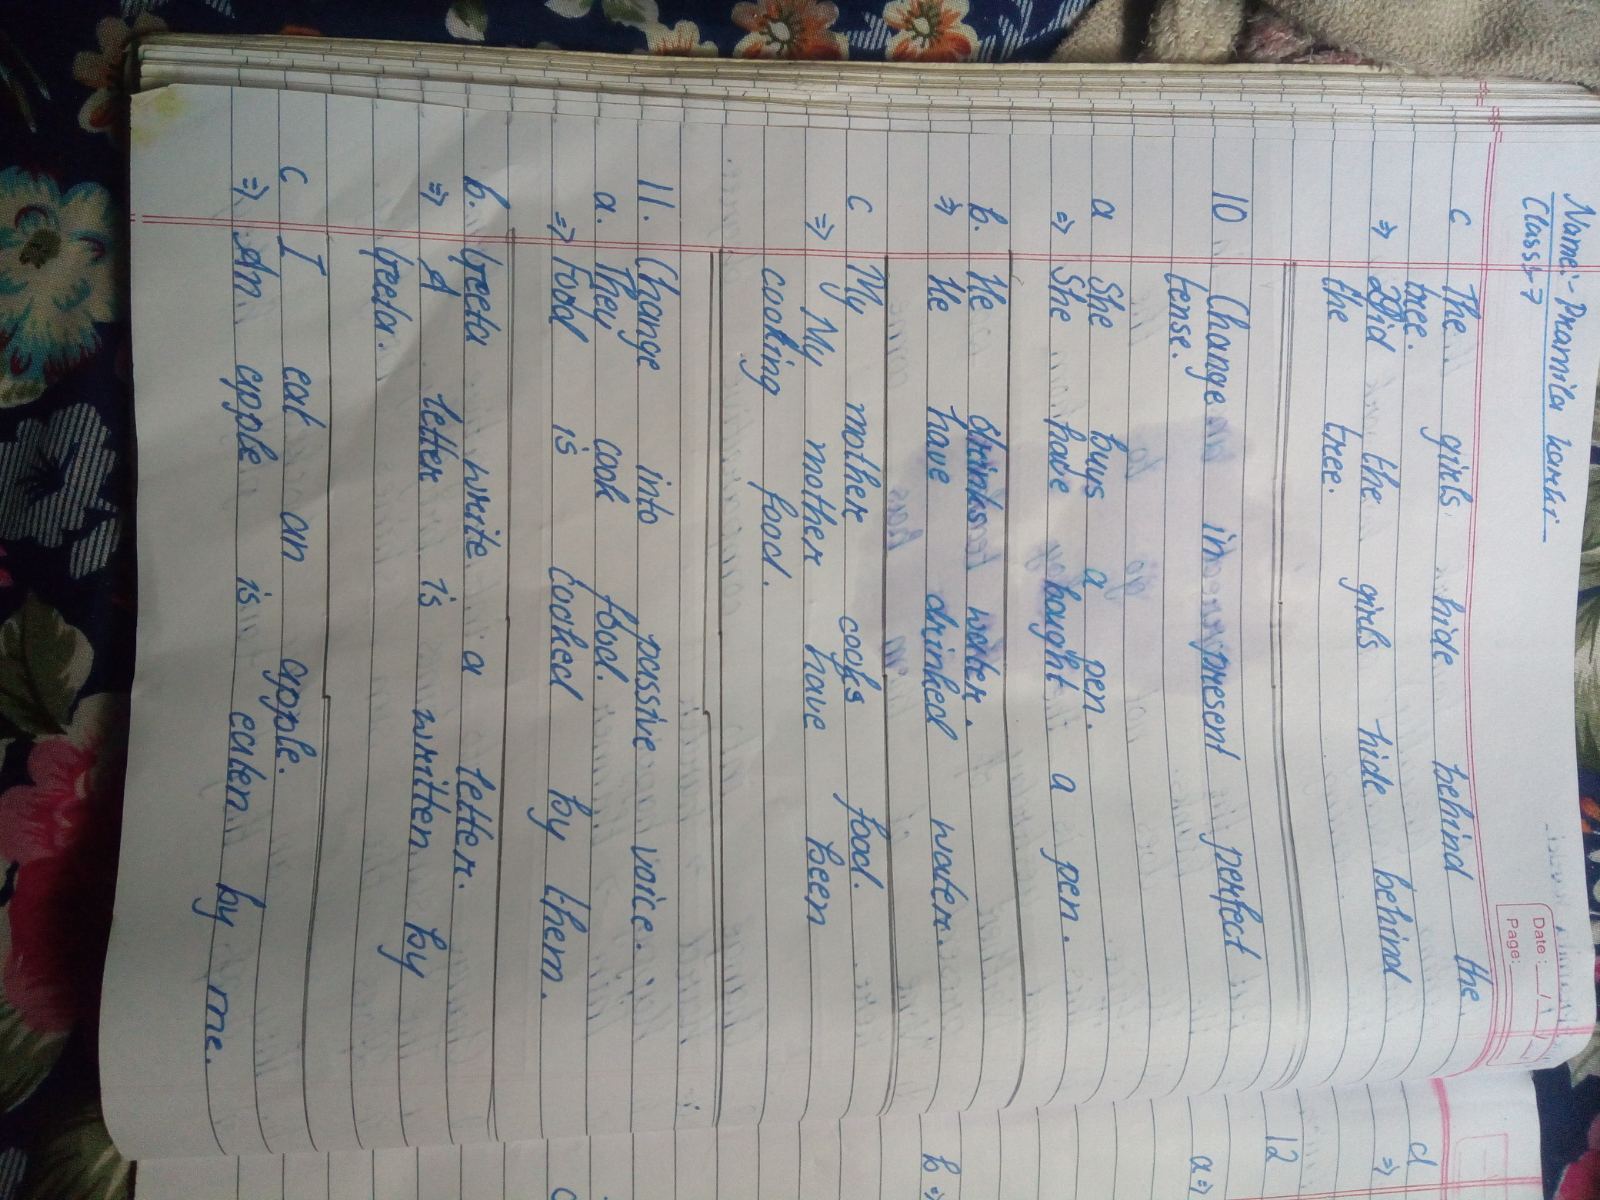 Name:- Pramila karki
Class:-7
Date:__/__/__
Page:____
c The girls hide behind the
tree.
⇒ Did the girls hide behind
the tree.
10 Change in present perfect
tense.
a She buys a pen.
⇒ She have bought a pen.
b. He drinks water.
⇒ He have drinked water.
c My mother cooks food.
⇒ My mother have been
cooking food.
11. Change into passive voice.
a. They cook food.
⇒ Food is cooked by them.
b. Geeta write a letter.
⇒ A letter is written by
Geeta.
c I eat an apple.
⇒ An apple is eaten by me.
d
⇒
12
a⇒
b⇒